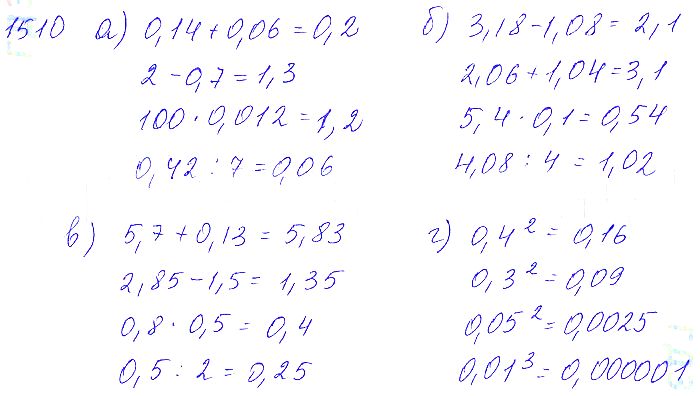 1510 а) 0,14+0,06=0,2
2-0,7=1,3
100·0,012=1,2
0,42:7=0,06
б) 3,18-1,08=2,1
2,06+1,04=3,1
5,4·0,1=0,54
4,08:4=1,02
в) 5,7+0,13=5,83
2,85-1,5=1,35
0,8·0,5=0,4
0,5:2=0,25
г) 0,4²=0,16
0,3²=0,09
0,05²=0,0025
0,01³=0,000001